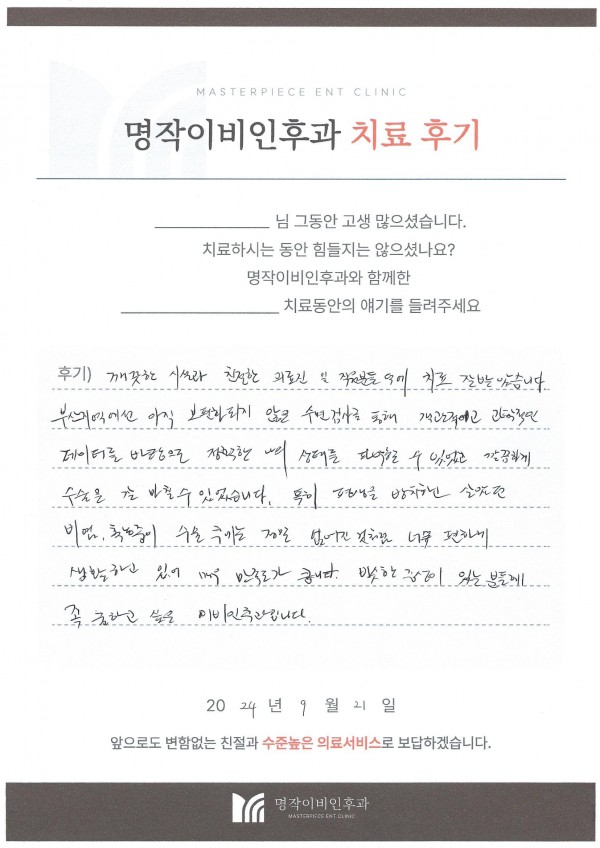 MASTERPIECE ENT CLINIC
명작이비인후과 치료 후기
님 그동안 고생 많으셨습니다.
치료하시는 동안 힘들지는 않으셨나요?
명작이비인후과와 함께한
치료동안의 얘기를 들려주세요
후기) 깨끗한 시설과 친절한 의료진 및 직원분들 덕에 치료 잘받았습니다
부산지역에선 아직 보편화되지 않은 수면검사를 통해 객관적이고 과학적인
데이터를 바탕으로 정확한 나의 상태를 파악할 수 있었고 깔끔하게
수술을 잘 마칠수 있었습니다. 특히 평생을 방치하고 살았던
비염, 축농증이 수술 후에는 정말 없어진 것처럼 너무 편하게
생활하고 있어 매우 만족도가 큽니다. 비슷한 증상이 있는 분들께
꼭 추천하고 싶은 이비인후과입니다.
20 24 년 9 월 21 일
앞으로도 변함없는 친절과 수준높은 의료서비스로 보답하겠습니다.
명작이비인후과
MASTERPIECE ENT CLINIC